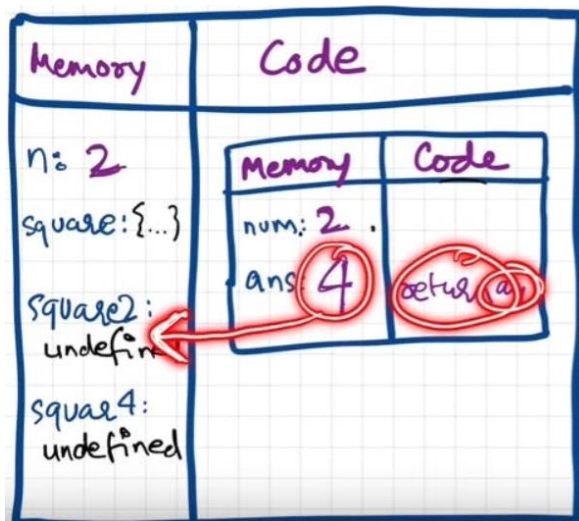 Memory Code
n: 2
square: {...}
square2:
undefin
squar4:
undefined
Memory Code
num: 2
ans: 4 retur a